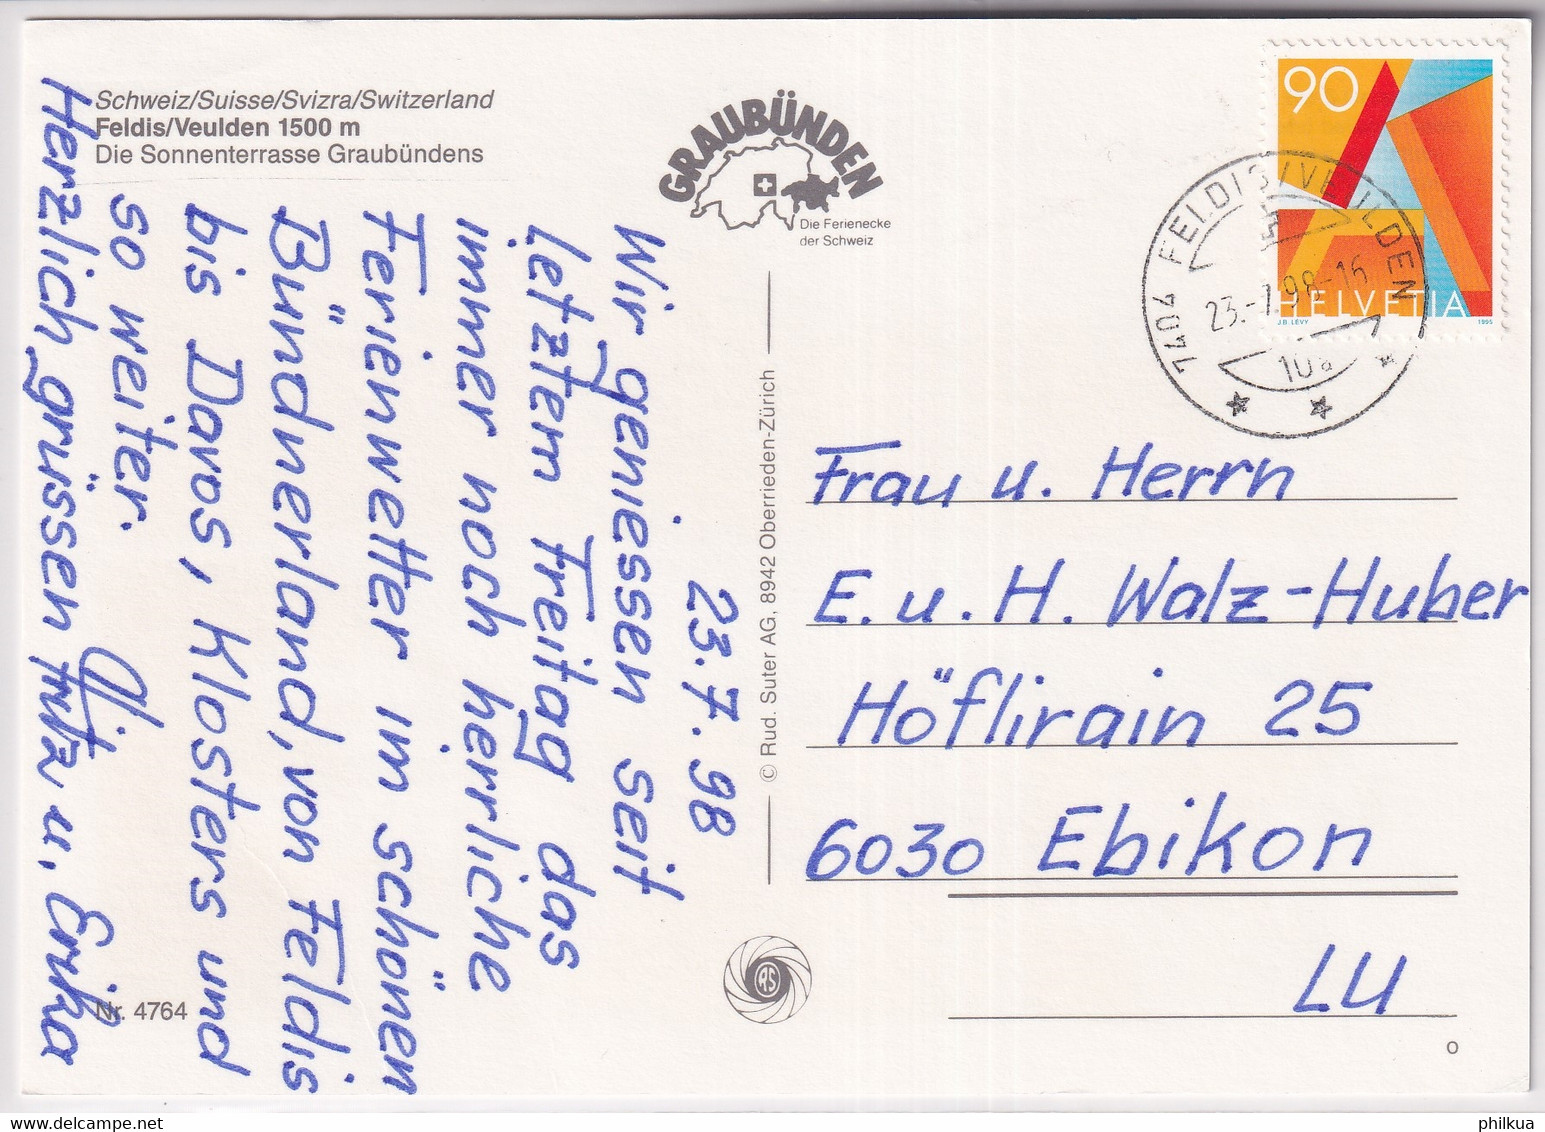 Schweiz/Suisse/Svizra/Switzerland
Feldis/Veulden 1500 m
Die Sonnenterrasse Graubündens
GRAUBÜNDEN
Die Ferienecke
der Schweiz
90
HELVETIA
J.B. LEVY
1995
7404 FELDIS/VEULDEN
23.-7.98-16
23.7.98
Wir geniessen seit
letztem Freitag das
immer noch herrliche
Ferienwetter im schönen
Bündnerland, von Feldis
bis Davos, Klosters und
so weiter.
Herzlich grüssen Fritz u. Erika
© Rud. Suter AG, 8942 Oberrieden-Zürich
Frau u. Herrn
E. u. H. Walz-Huber
Höflirain 25
6030 Ebikon
LU
RS
Nr. 4764
o
philkua